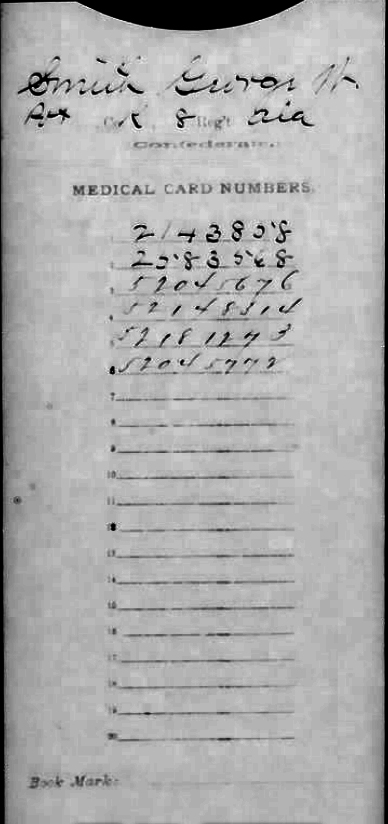 Smith George W.
Pvt Co. K, 8 Reg't Ala
Confederate.
MEDICAL CARD NUMBERS.
1 2143858
2 2583568
3 52045676
4 52148314
5 52181273
6 52045772
7
8
9
10
11
12
13
14
15
16
17
18
19
20
Book Mark: